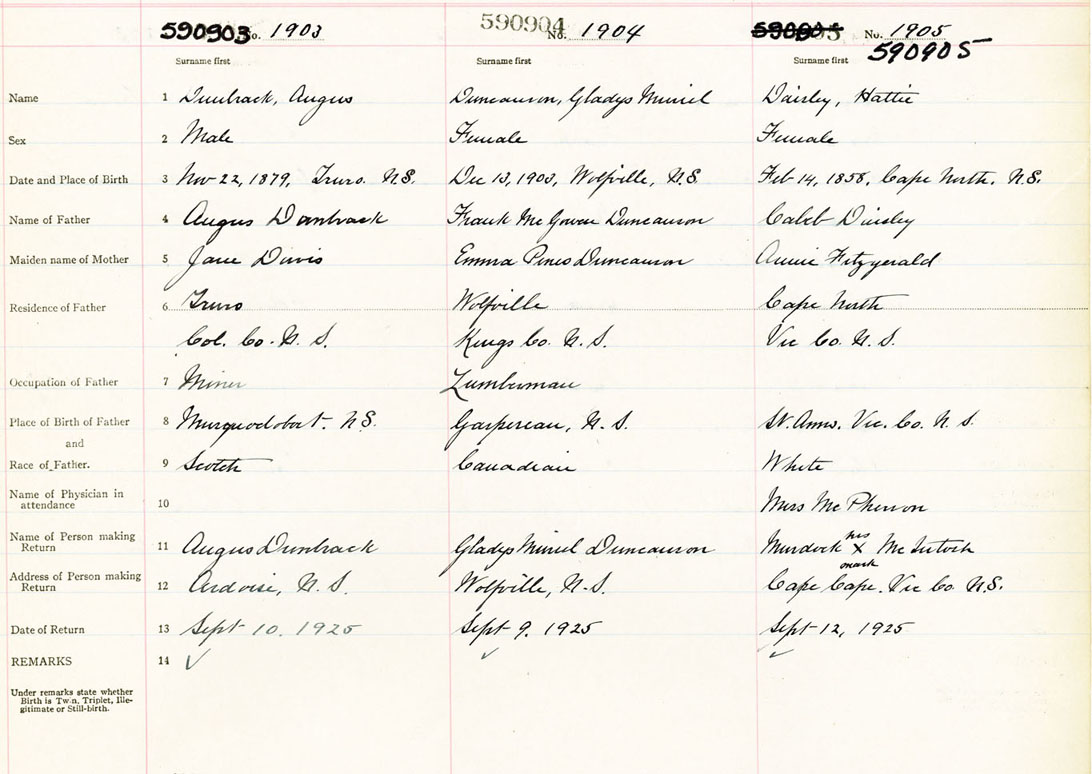 590903 No. 1903 590904 No. 1904 590905 No. 1905
590905
Surname first Surname first Surname first
Name 1 Dunbrack, Angus Duncanson, Gladys Muriel Daisley, Hattie
Sex 2 Male Female Female
Date and Place of Birth 3 Nov 22, 1879, Truro. N.S. Dec 13, 1903, Wolfville, N.S. Feb 14, 1858, Cape North. N.S.
Name of Father 4 Angus Dunbrack Frank Mc Gowen Duncanson Caleb Daisley
Maiden name of Mother 5 Jane Davis Emma Duncanson Annie Fitzgerald
Residence of Father 6 Truro Wolfville Cape North
Col. Co. N. S. Kings Co. N. S. Vic Co. N. S.
Occupation of Father 7 Miner Lumberman
Place of Birth of Father 8 Musquodobat. N.S. Gaspereau, N. S. St. Anns. Vic. Co. N. S.
and
Race of Father. 9 Scotch Canadian White
Name of Physician in
attendance 10 Mrs Mc Pherson
Name of Person making
Return 11 Angus Dunbrack Gladys Muriel Duncanson Murdock his X mark Mc Intosh
Address of Person making
Return 12 Ardoise, N. S. Wolfville, N. S. Cape Cape. Vic Co. N.S.
Date of Return 13 Sept 10. 1925 Sept 9. 1925 Sept 12, 1925
REMARKS 14 ✓ ✓ ✓
Under remarks state whether
Birth is Twin, Triplet, Ille-
gitimate or Still-birth.